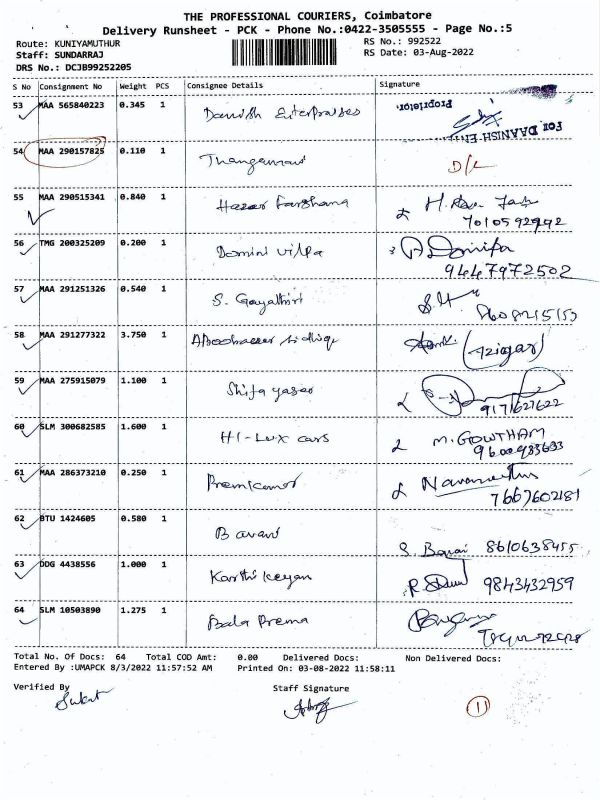 THE PROFESSIONAL COURIERS, Coimbatore
Delivery Runsheet - PCK - Phone No.:0422-3505555 - Page No.:5
Route: KUNIYAMUTHUR RS No.: 992522
Staff: SUNDARRAJ RS Date: 03-Aug-2022
DRS No.: DCJB99252205
S No Consignment No Weight PCS Consignee Details Signature
53 MAA 565840223 0.345 1 Danish Enterprises
Proprietor.
For DAANISH ENTE
54 MAA 290157825 0.110 1 D/L
55 MAA 290515341 0.840 1 Hazar Farshana
7010592992
56 TMG 200325209 0.200 1 Domini Vilpa
9447972502
57 MAA 291251326 0.540 1 S. Gayathiri
58 MAA 291277322 3.750 1
59 MAA 275915079 1.100 1 Shifa yaser
9171627622
60 SLM 300682585 1.600 1 HI-Lux cars M. GOWTHAM
9600983633
61 MAA 286373210 0.250 1 Premkumar
7667602181
62 BTU 1424605 0.580 1 Bavani
8610638455
63 DDG 4438556 1.000 1 Karthikeyan 9843432959
64 SLM 10503890 1.275 1 Bala Prema
Total No. Of Docs: 64 Total COD Amt: 0.00 Delivered Docs: Non Delivered Docs:
Entered By :UMAPCK 8/3/2022 11:57:52 AM Printed On: 03-08-2022 11:58:11
Verified By Staff Signature
11